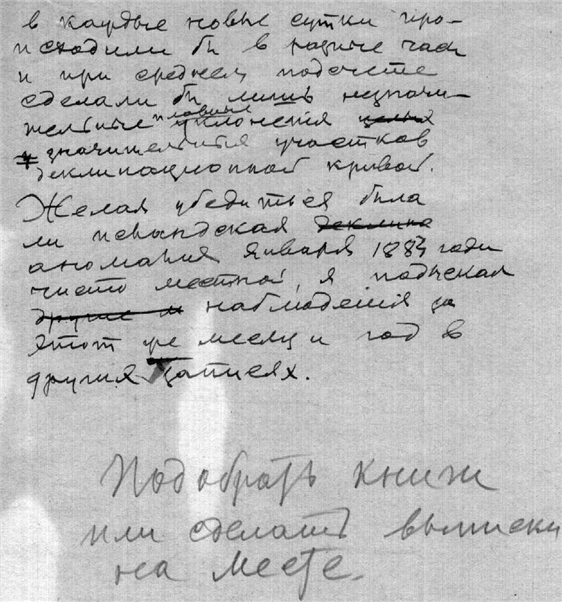 в каждые новые сутки про-
исходили бы в разные часы
и при среднем подсчете
сделали бы лишь незначи-
тельные плавные уклонения
значительных участков
деклинационной кривой.
Желая убедиться была
ли исландская
аномалия января 1883 года
чисто местной, я подыскал
наблюдения за
этот же месяц и год в
других записях.
Подобрать книги
или сделать выписки
на месте.